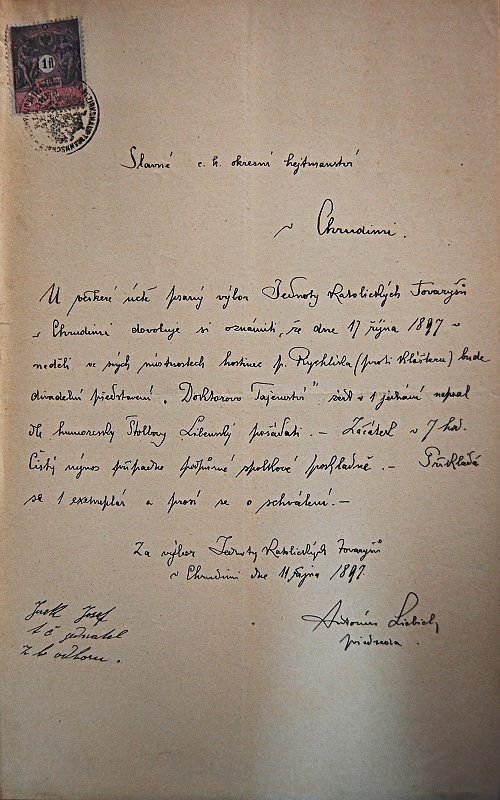 1 fl
Slavné c. k. okresní hejtmanství
v Chrudimi.
U veškeré úctě psaný výbor Jednoty Katolických Tovaryšů
v Chrudimi dovoluje si oznámiti, že dne 17 října 1897 v
neděli ve svých místnostech hostinec p. Rychlíka (proti klášteru) bude
divadelní představení „Doktorovo Tajemství" žert v 1 jednání nepsal
dle humoresky Štolbovy Libenský pořádati. — Začátek v 7 hod.
Čistý výnos připadne podpůrné spolkové pokladně. — Přikládá
se 1 exemplář a prosí se o schválení. —
Za výbor Jednoty Katolických Tovaryšů
v Chrudimi dne 11 října 1897.
Josef
t. č. jednatel
z b odboru.
Antonín Liebich
předseda